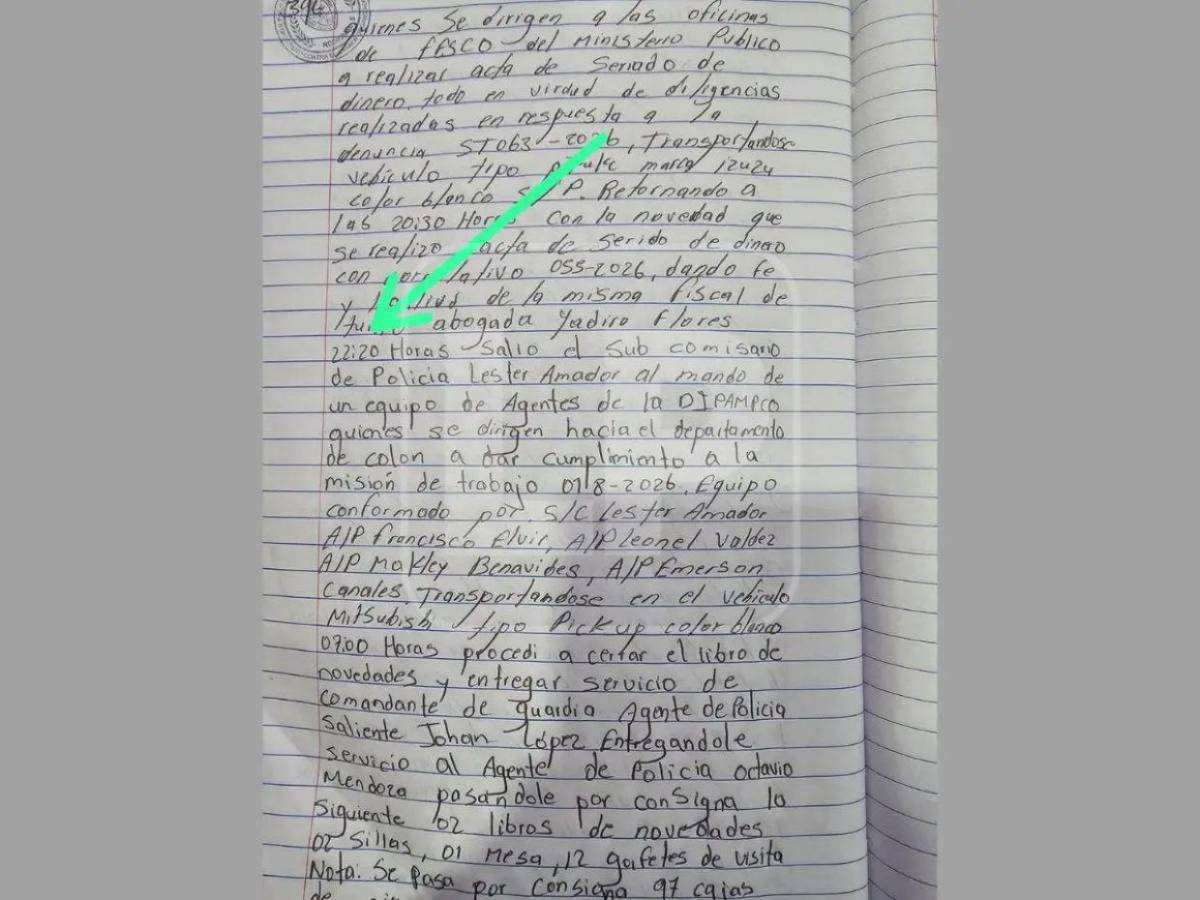 394
quienes se dirigen a las oficinas
de FESCO del Ministerio Publico
a realizar acta de Seriado de
dinero, todo en virdud de diligencias
realizadas en respuesta a la
denuncia ST063-2026, Transportandose
vehiculo tipo marca izuzu
color blanco S/P. Retornando a
las 20:30 Horas con la novedad que
se realizo acta de Serido de dinero
con 055-2026, dando fe
y de la misma fiscal de
turno abogada Yadira Flores
22:20 Horas Salio el Sub comisario
de Policia Lester Amador al mando de
un equipo de Agentes de la DIPAMPCO
quienes se dirigen hacia el departamento
de colon a dar cumplimiento a la
misión de trabajo 018-2026. Equipo
conformado por S/C Lester Amador
A/P francisco Elvir, A/P leonel Valdez
A/P Makley Benavides, A/P Emerson
Canales. Transportandose en el vehiculo
Mitsubishi tipo Pickup color blanco
07:00 Horas procedi a cerrar el libro de
novedades y entregar servicio de
comandante de guardia Agente de Policia
Saliente Johan López Entregandole
servicio al Agente de Policia octavio
Mendoza pasandole por consigna lo
Siguiente 02 libros de novedades
02 Sillas, 01 Mesa, 12 gafetes de visita
Nota: Se Pasa por Consigna 97 cajas
de